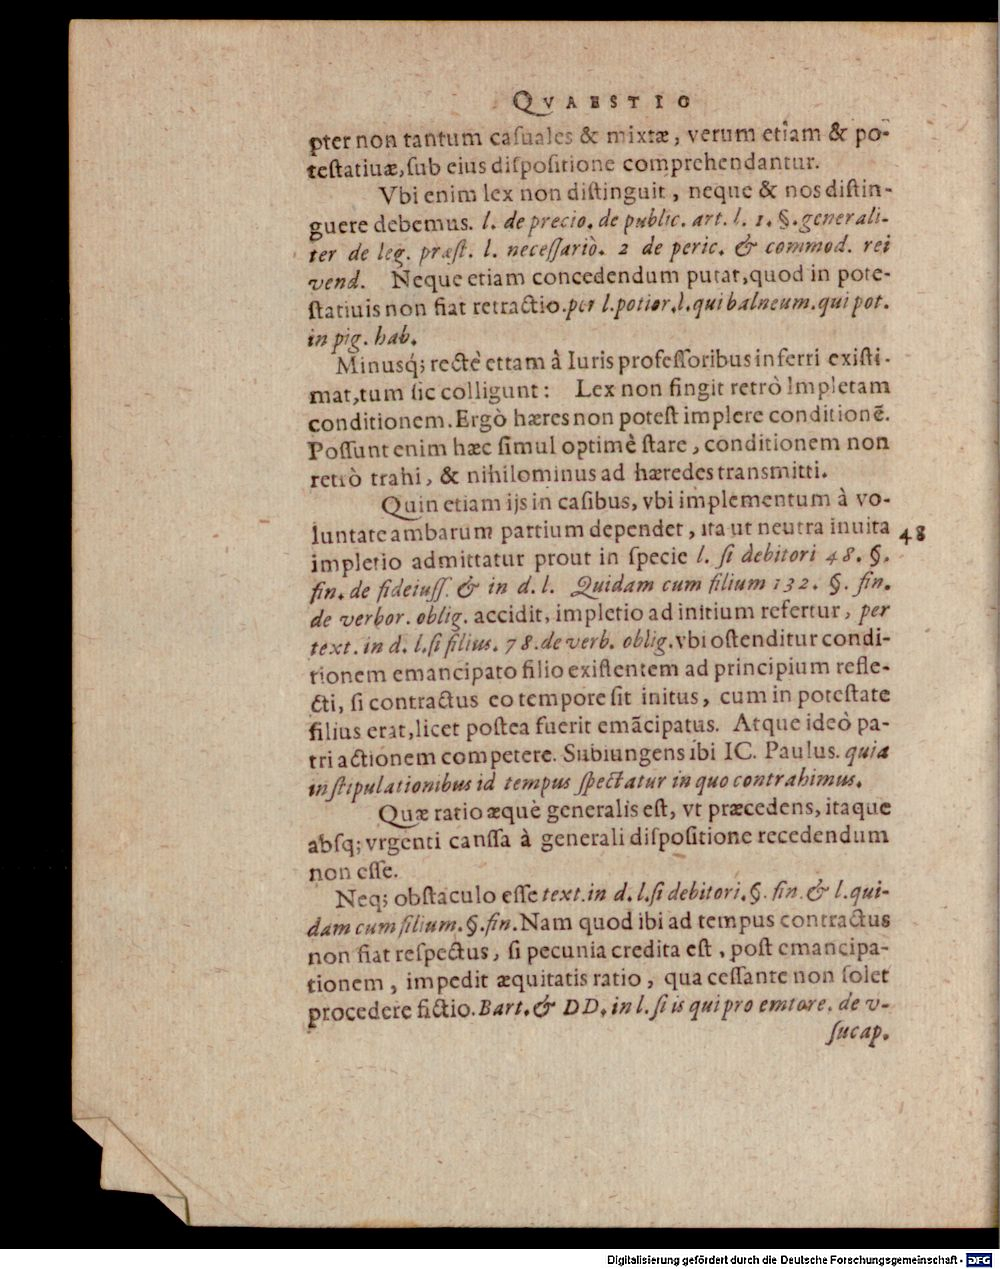 QVAESTIO
pter non tantum casuales & mixtæ, verum etiam & po-
testatiuæ, sub eius dispositione comprehendantur.
Vbi enim lex non distinguit, neque & nos distin-
guere debemus. l. de precio. de public. art. l. 1. §. generali-
ter de leg. præst. l. necessariò. 2 de peric. & commod. rei
vend. Neque etiam concedendum putat, quod in pote-
statiuis non fiat retractio. per l. potior. l. qui balneum. qui pot.
in pig. hab.
Minusq́; rectè ettam â Iuris professoribus inferri existi-
mat, tum sic colligunt: Lex non fingit retrò Impletam
conditionem. Ergò hæres non potest implere conditionẽ.
Possunt enim hæc simul optimè stare, conditionem non
retrò trahi, & nihilominus ad hæredes transmitti.
Quin etiam ijs in casibus, vbi implementum à vo-
luntate ambarum partium dependet, ita ut neutra inuita 48
impletio admittatur prout in specie l. si debitori 48. §.
fin. de fideiuss. & in d. l. Quidam cum filium 132. §. fin.
de verbor. oblig. accidit, impletio ad initium refertur, per
text. in d. l. si filius. 78. de verb. oblig. vbi ostenditur condi-
tionem emancipato filio existentem ad principium refle-
cti, si contractus eo tempore sit initus, cum in potestate
filius erat, licet postea fuerit emãcipatus. Atque ideò pa-
tri actionem competere. Subiungens ibi IC. Paulus. quia
in stipulationibus id tempus spectatur in quo contrahimus.
Quæ ratio æquè generalis est, vt præcedens, itaque
absq; vrgenti canssa à generali dispositione recedendum
non esse.
Neq; obstaculo esse text. in d. l. si debitori. §. fin. & l. qui-
dam cum filium. §. fin. Nam quod ibi ad tempus contractus
non fiat respectus, si pecunia credita est, post emancipa-
tionem, impedit æquitatis ratio, qua cessante non solet
procedere fictio. Bart. & DD. in l. si is qui pro emtore. de v-
sucap.
Digitalisierung gefördert durch die Deutsche Forschungsgemeinschaft - DFG